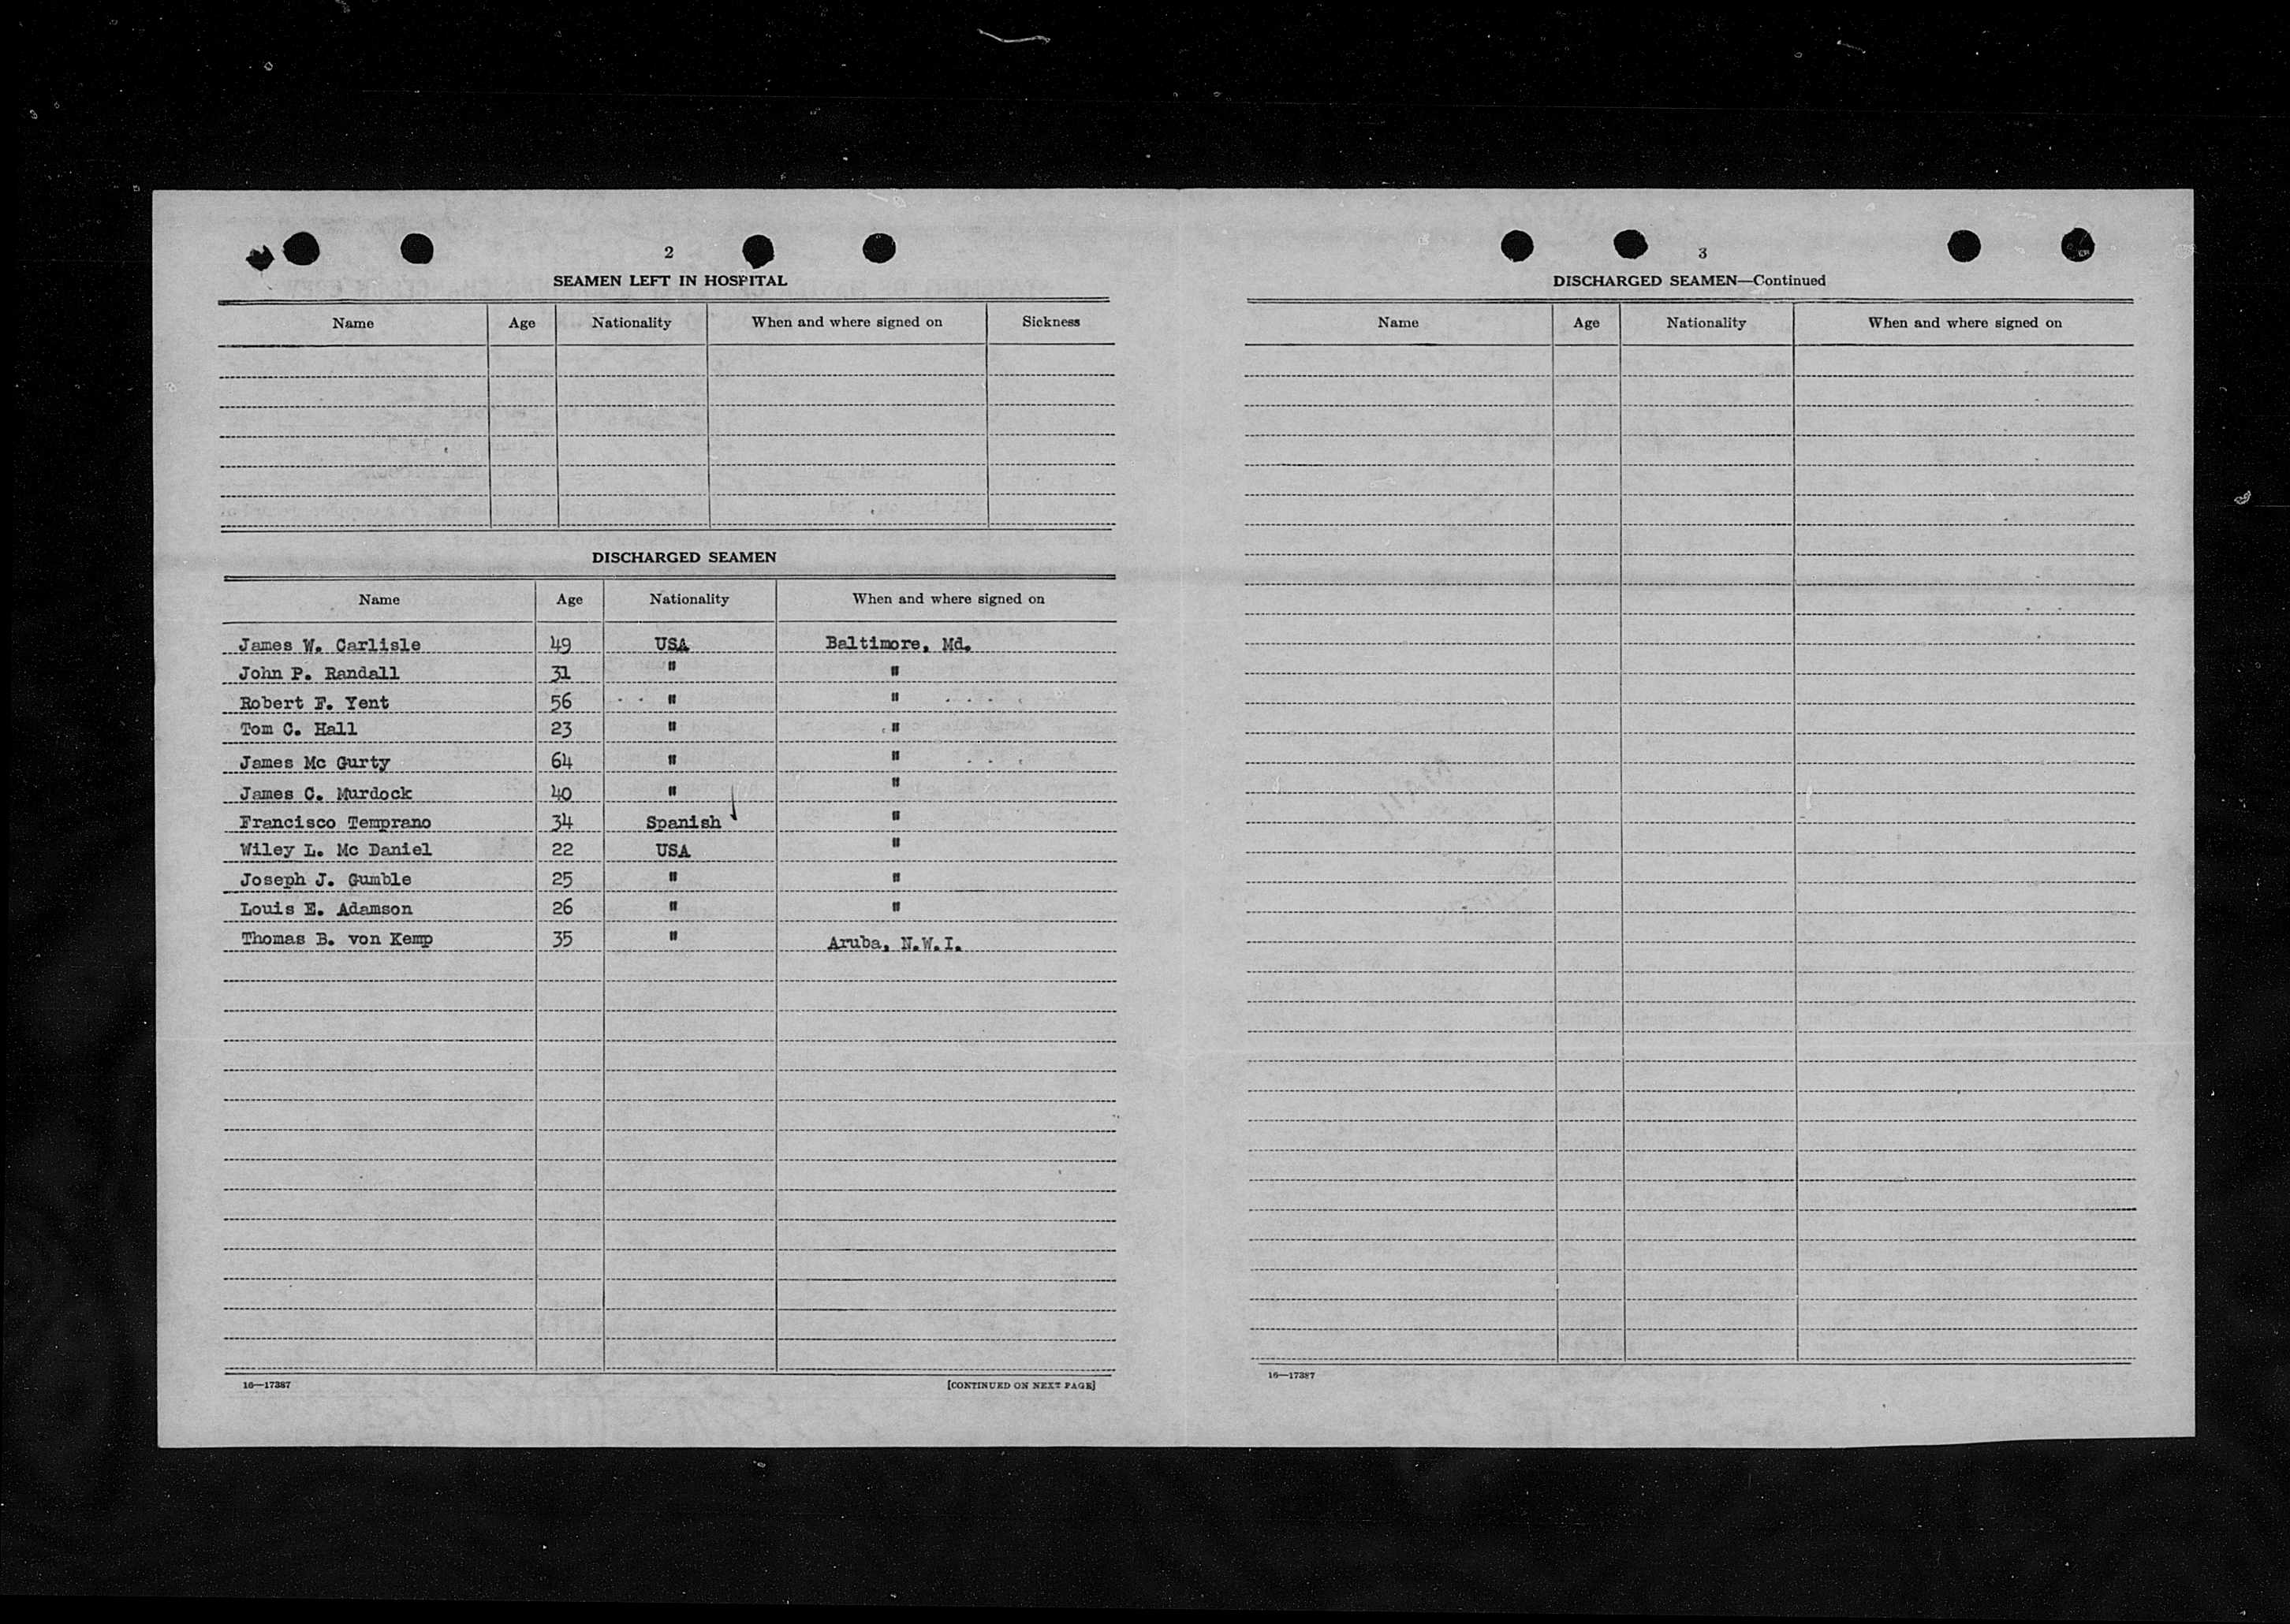 2
SEAMEN LEFT IN HOSPITAL
Name Age Nationality When and where signed on Sickness
DISCHARGED SEAMEN
Name Age Nationality When and where signed on
James W. Carlisle 49 USA Baltimore, Md.
John P. Randall 31 " "
Robert F. Yent 56 " "
Tom C. Hall 23 " "
James Mc Gurty 64 " "
James C. Murdock 40 " "
Francisco Temprano 34 Spanish "
Wiley L. Mc Daniel 22 USA "
Joseph J. Gumble 25 " "
Louis E. Adamson 26 " "
Thomas B. von Kemp 35 " Aruba, N.W.I.
16—17387 [CONTINUED ON NEXT PAGE]
3
DISCHARGED SEAMEN—Continued
Name Age Nationality When and where signed on
16—17387